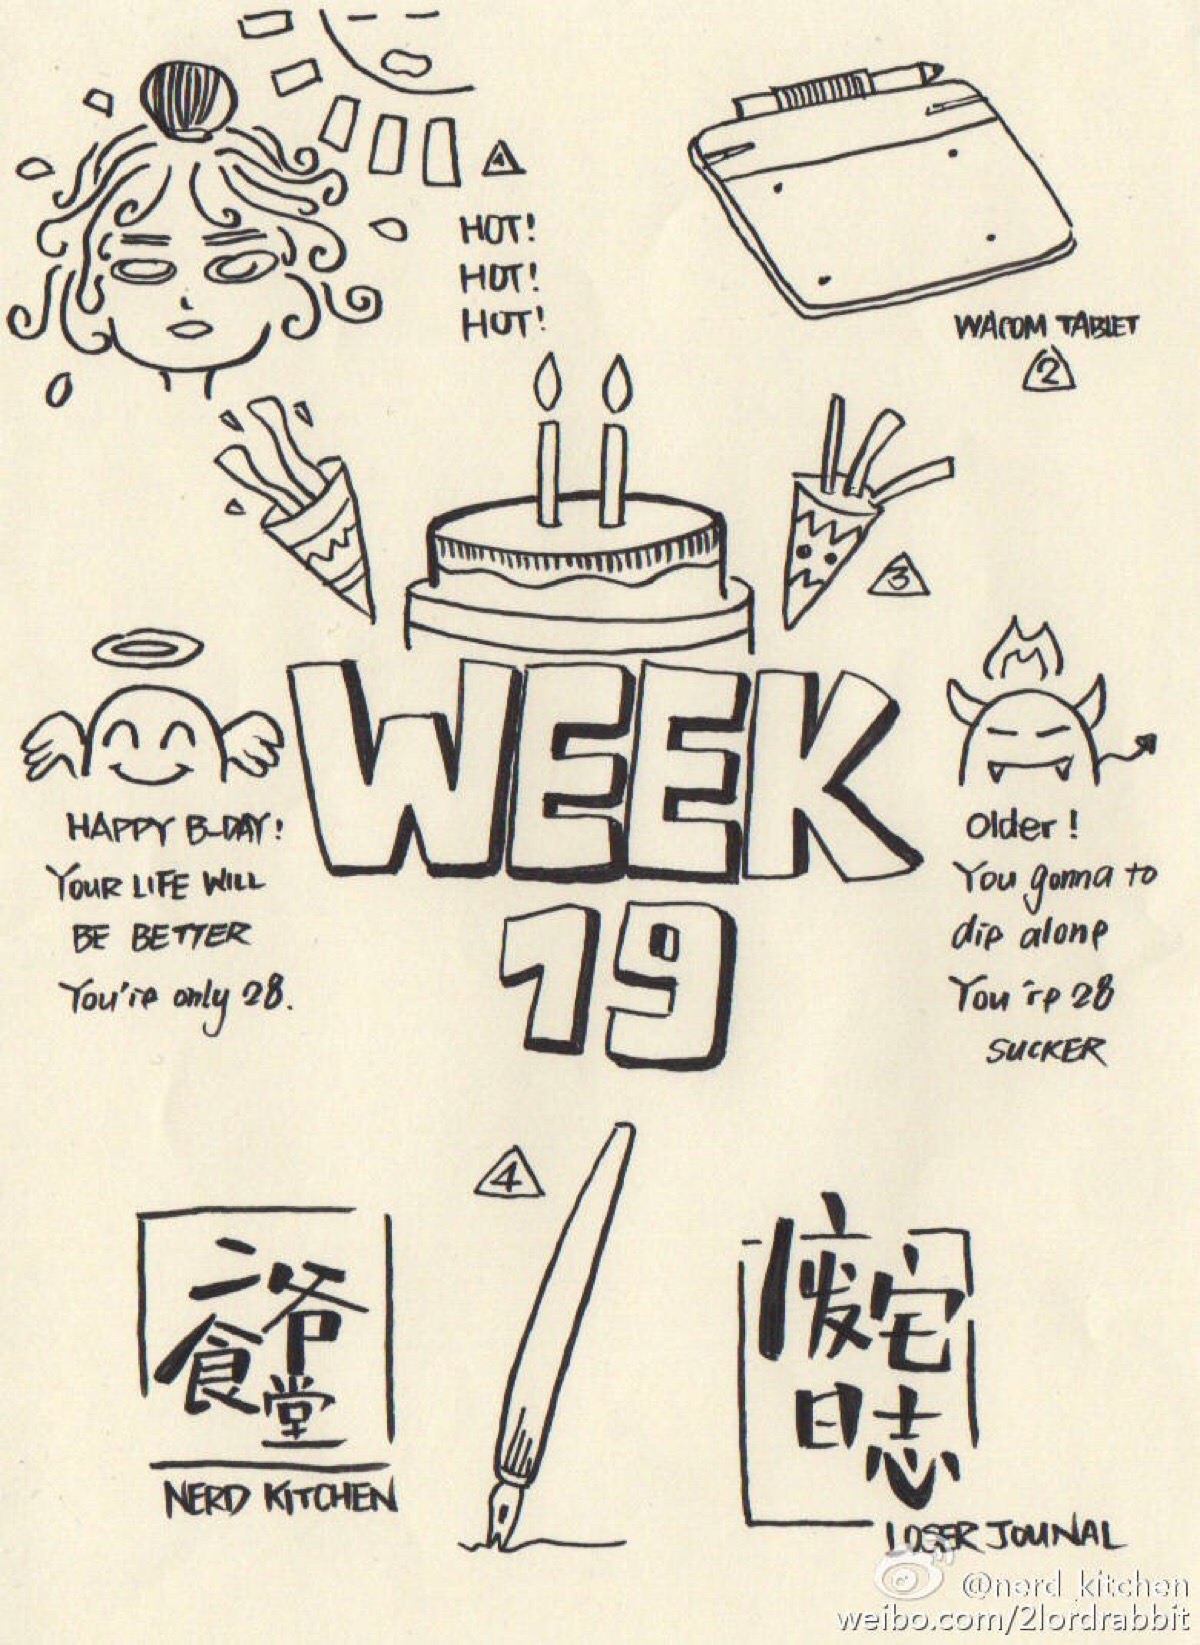 1
HOT!
HOT!
HOT!
WACOM TABLET
2
3
WEEK
19
HAPPY B-DAY!
YOUR LIFE WILL
BE BETTER
You're only 28.
Older!
You gonna to
die alone
You're 28
SUCKER
4
二爷
食堂
NERD KITCHEN
废宅
日志
LOSER JOUNAL
@nerd_kitchen
weibo.com/2lordrabbit